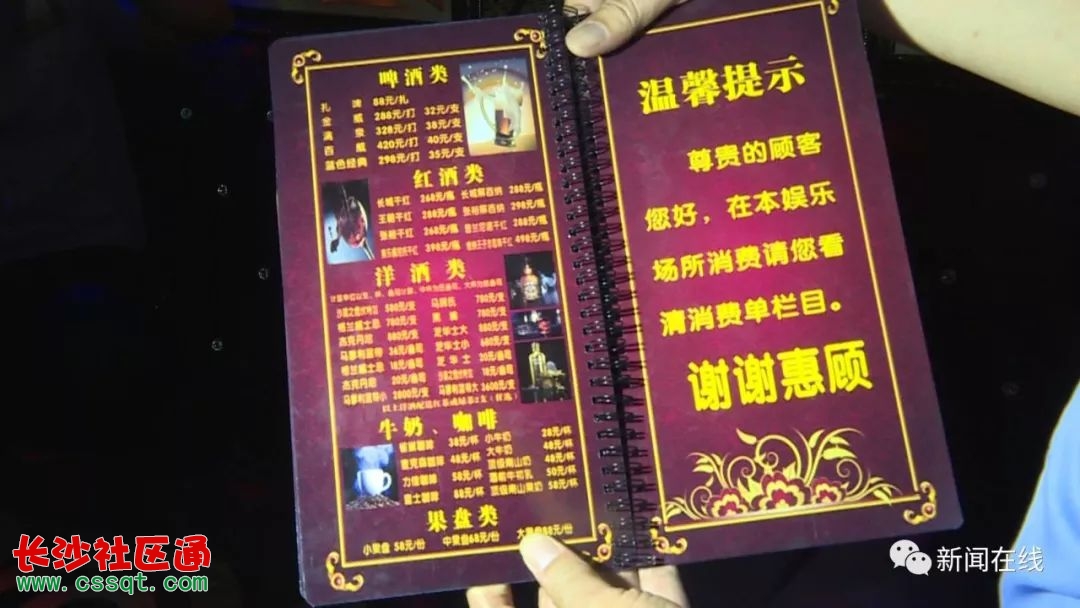 啤酒类
扎 啤 88元/扎
金 威 288元/打 32元/支
漓 泉 328元/打 38元/支
百 威 420元/打 40元/支
蓝色经典 298元/打 35元/支
红酒类
长城干红 268元/瓶 长城解百纳 288元/瓶
王朝干红 288元/瓶 张裕解百纳 298元/瓶
张裕干红 268元/瓶 288元/瓶
398元/瓶 498元/瓶
洋酒类
580元/支 马爹利 780元/支
格兰威士忌 780元/支 黑牌 780元/支
杰克丹尼 880元/支 芝华士大 880元/支
马爹利蓝带 36元/ 芝华士小 680元/支
格兰威士忌 18元/ 芝华士 20元/
杰克丹尼 20元/ 18元/
马爹利蓝带小 2800元/支 马爹利蓝带大 3600元/支
牛奶、咖啡
雀巢咖啡 38元/杯 小牛奶 28元/杯
48元/杯 大牛奶 48元/杯
力信咖啡 58元/杯 顶级南山奶 48元/杯
富士咖啡 88元/杯 50元/杯
顶级南山果奶 58元/杯
果盘类
小果盘 58元/份 中果盘68元/份 大果盘88元/份
温馨提示
尊贵的顾客
您好，在本娱乐
场所消费请您看
清消费单栏目。
谢谢惠顾
长沙社区通
www.cssqt.com
新闻在线